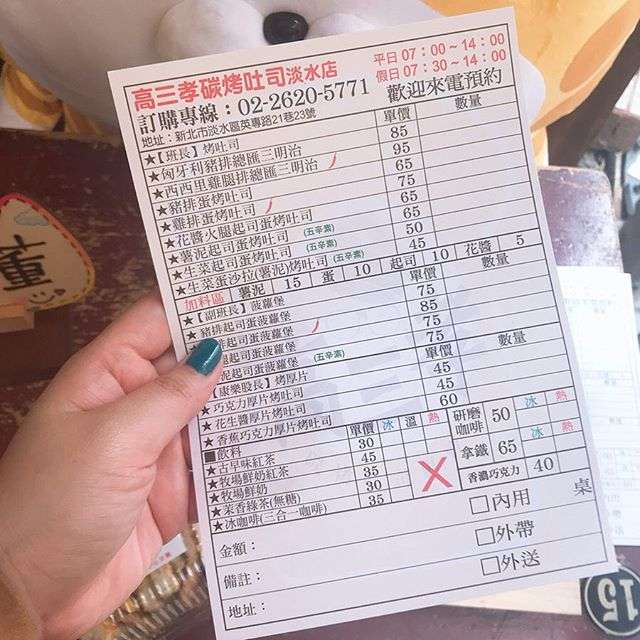 高三孝碳烤吐司淡水店
平日07:00~14:00
假日07:30~14:00
訂購專線:02-2620-5771 歡迎來電預約
地址:新北市淡水區英專路21巷23號
★【班長】烤吐司 單價 數量
★匈牙利豬排總匯三明治 85
★西西里雞腿排總匯三明治 95
★豬排蛋烤吐司 65
★雞排蛋烤吐司 75
★花醬火腿起司蛋烤吐司 65
★薯泥起司蛋烤吐司 (五辛素) 65
★生菜起司蛋烤吐司 (五辛素) 50
★生菜蛋沙拉(薯泥)烤吐司 (五辛素) 45
加料區 薯泥 15 蛋 10 起司 10 花醬 5
★【副班長】菠蘿堡 單價 數量
★豬排起司蛋菠蘿堡 75
排起司蛋菠蘿堡 85
腿起司蛋菠蘿堡 75
泥起司蛋菠蘿堡 (五辛素) 75
【康樂股長】烤厚片 單價 數量
★巧克力厚片烤吐司 45
★花生醬厚片烤吐司 45
★香蕉巧克力厚片烤吐司 60
■飲料 單價 冰 溫 熱
★古早味紅茶 30
★牧場鮮奶紅茶 45
★牧場鮮奶 35
★茉香綠茶(無糖) 30
★冰咖啡(三合一咖啡) 35
研磨咖啡 50 冰 熱
拿鐵 65 冰 熱
香濃巧克力 40
金額:
備註:
地址:
□內用 桌
□外帶
□外送
15